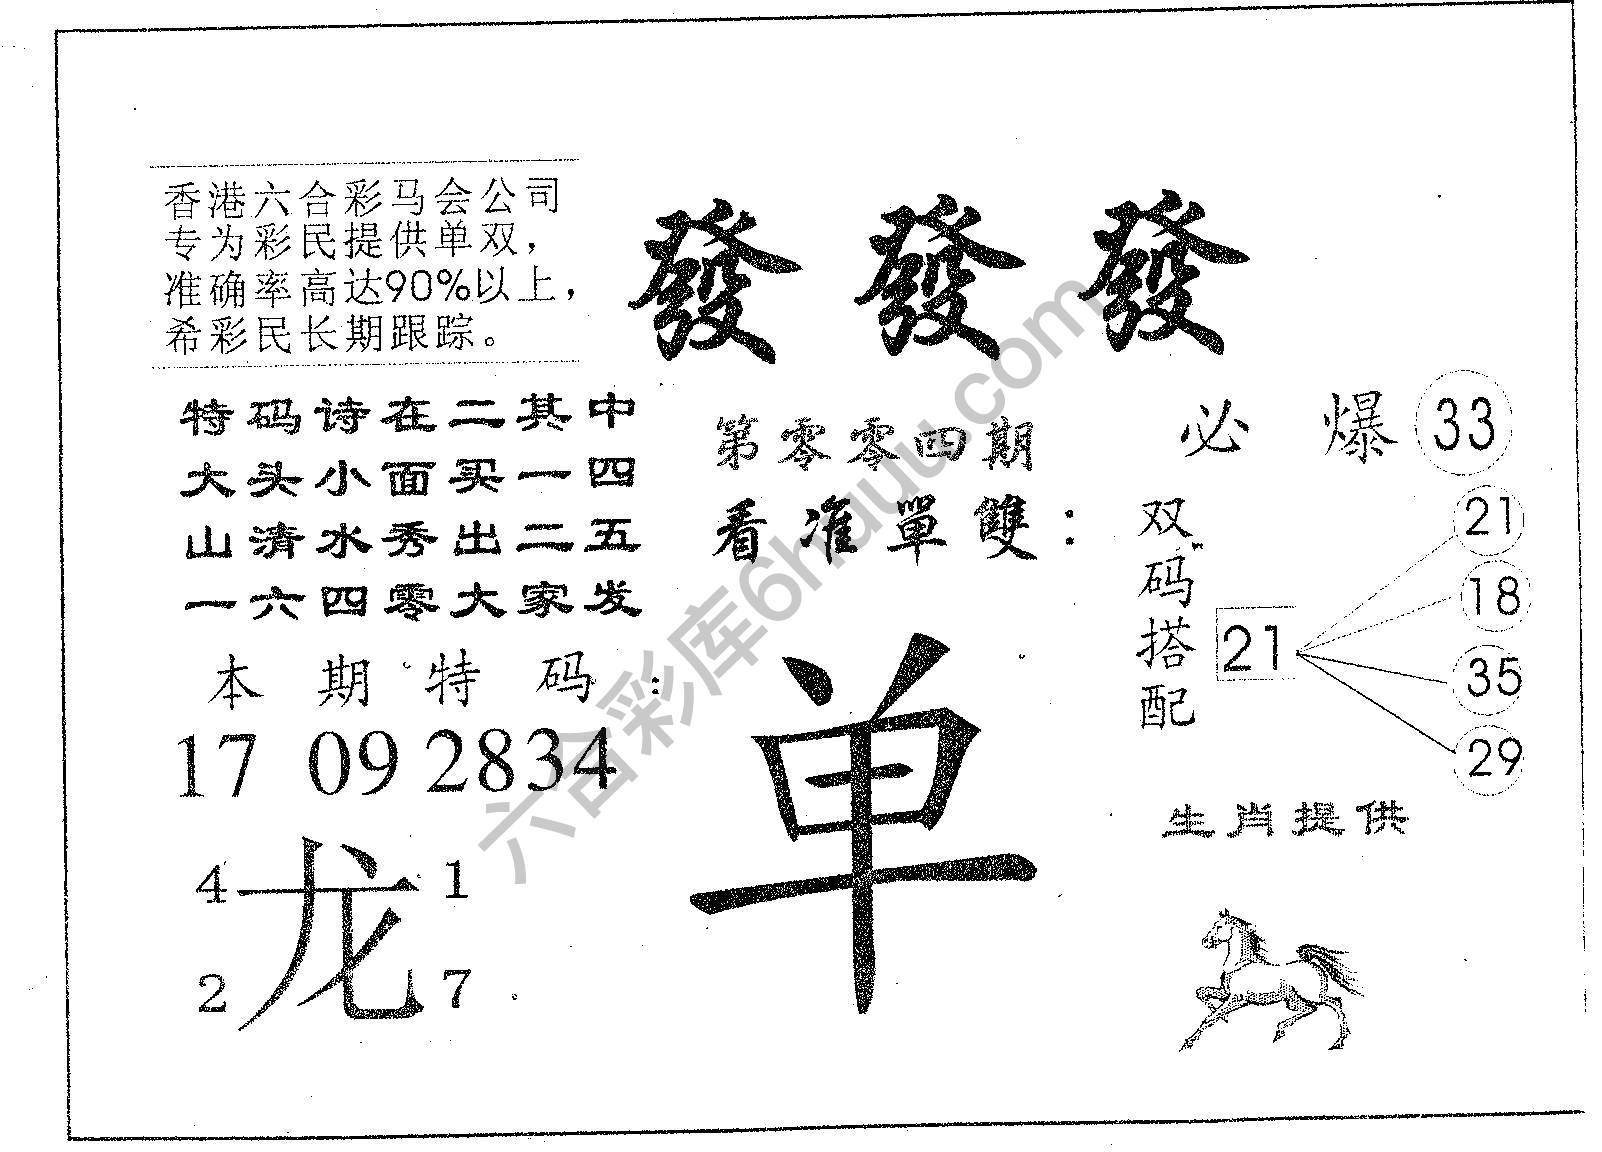 香港六合彩马会公司
专为彩民提供单双，
准确率高达90%以上，
希彩民长期跟踪。
發 發 發
特码诗在二其中
大头小面买一四
山清水秀出二五
一六四零大家发
第零零四期
看准單雙：
必 爆 33
双码搭配
21
21
18
35
29
本期特码：
17 09 28 34
单
生肖提供
4 龙 1
2 7
六合彩库6hauu.com